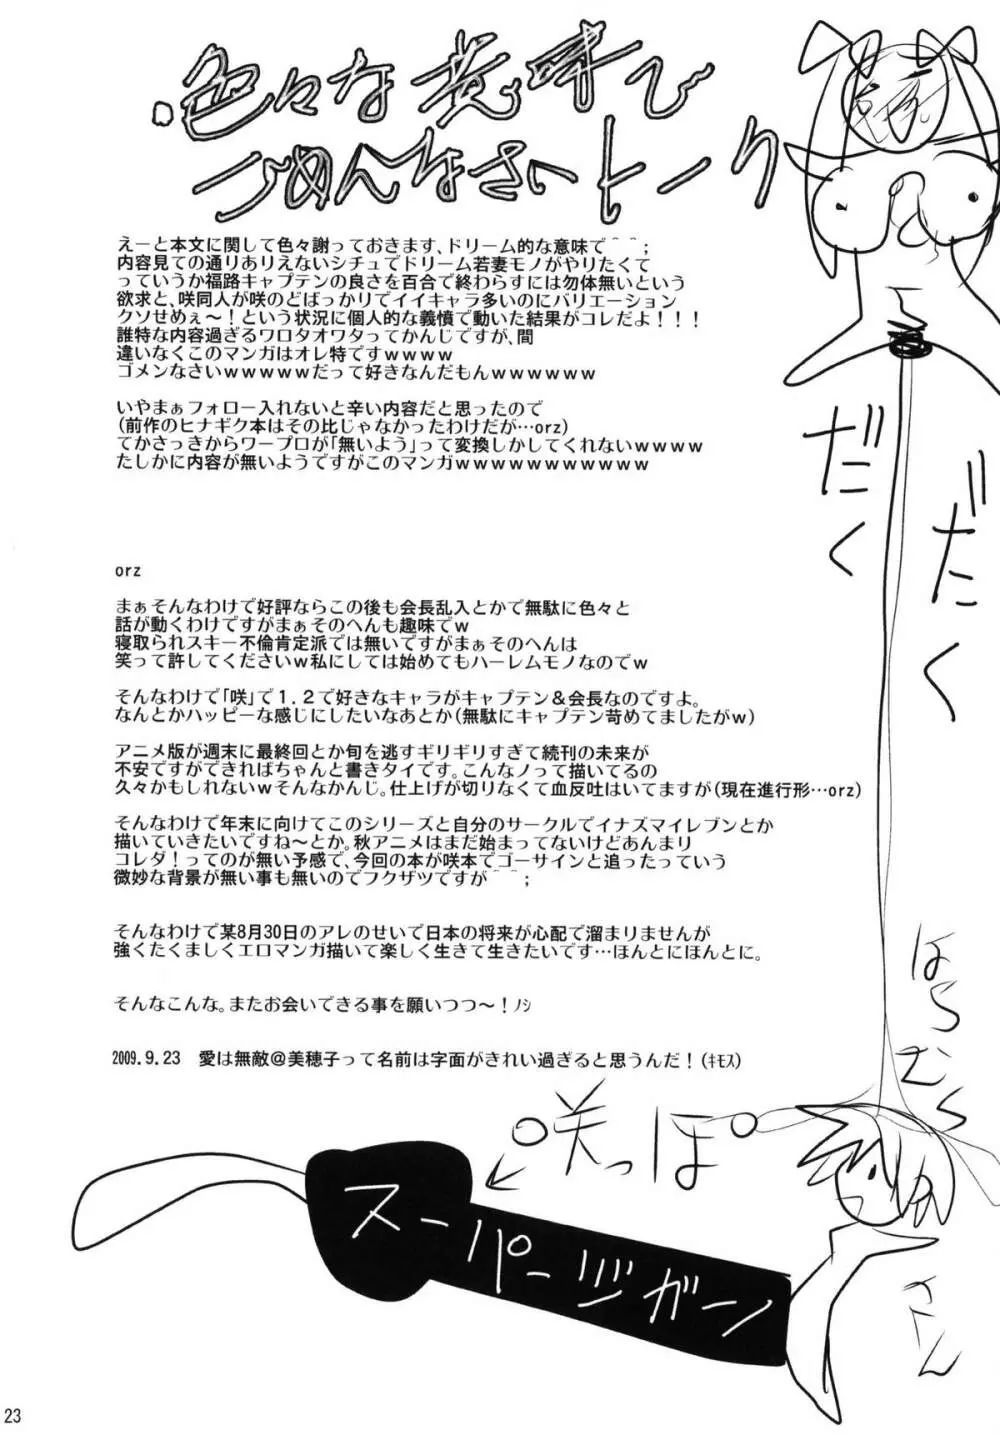 色々な意味で
ごめんなさいトーク
えーと本文に関して色々謝っておきます、ドリーム的な意味で＾＾;
内容見ての通りありえないシチュでドリーム若妻モノがやりたくて
っていうか福路キャプテンの良さを百合で終わらすには勿体無いという
欲求と、咲同人が咲のどばっかりでイイキャラ多いのにバリエーション
クソせめぇ～！という状況に個人的な義憤で動いた結果がコレだよ！！！
誰特な内容過ぎるワロタオワタってかんじですが、間
違いなくこのマンガはオレ特ですｗｗｗｗ
ゴメンなさいｗｗｗｗｗだって好きなんだもんｗｗｗｗｗｗ
いやまぁフォロー入れないと辛い内容だと思ったので
(前作のヒナギク本はその比じゃなかったわけだが…orz)
てかさっきからワープロが「無いよう」って変換しかしてくれないｗｗｗｗ
たしかに内容が無いようですがこのマンガｗｗｗｗｗｗｗｗｗｗｗ
orz
まぁそんなわけで好評ならこの後も会長乱入とかで無駄に色々と
話が動くわけですがまぁそのへんも趣味でｗ
寝取られスキー不倫肯定派では無いですがまぁそのへんは
笑って許してくださいｗ私にしては始めてもハーレムモノなのでｗ
そんなわけで「咲」で１.２で好きなキャラがキャプテン＆会長なのですよ。
なんとかハッピーな感じにしたいなあとか(無駄にキャプテン苛めてましたがｗ)
アニメ版が週末に最終回とか旬を逃すギリギリすぎて続刊の未来が
不安ですができればちゃんと書きタイです。こんなノって描いてるの
久々かもしれないｗそんなかんじ。仕上げが切りなくて血反吐はいてますが(現在進行形…orz)
そんなわけで年末に向けてこのシリーズと自分のサークルでイナズマイレブンとか
描いていきたいですね～とか。秋アニメはまだ始まってないけどあんまり
コレダ！ってのが無い予感で、今回の本が咲本でゴーサインと追ったっていう
微妙な背景が無い事も無いのでフクザツですが＾＾;
そんなわけで某8月30日のアレのせいで日本の将来が心配で溜まりませんが
強くたくましくエロマンガ描いて楽しく生きて生きたいです…ほんとにほんとに。
そんなこんな。またお会いできる事を願いつつ～！ﾉｼ
2009.9.23　愛は無敵＠美穂子って名前は字面がきれい過ぎると思うんだ！(ｷﾓｽ)
だくだく
はらむら
さん
咲っぽ
スーパージガーン
23